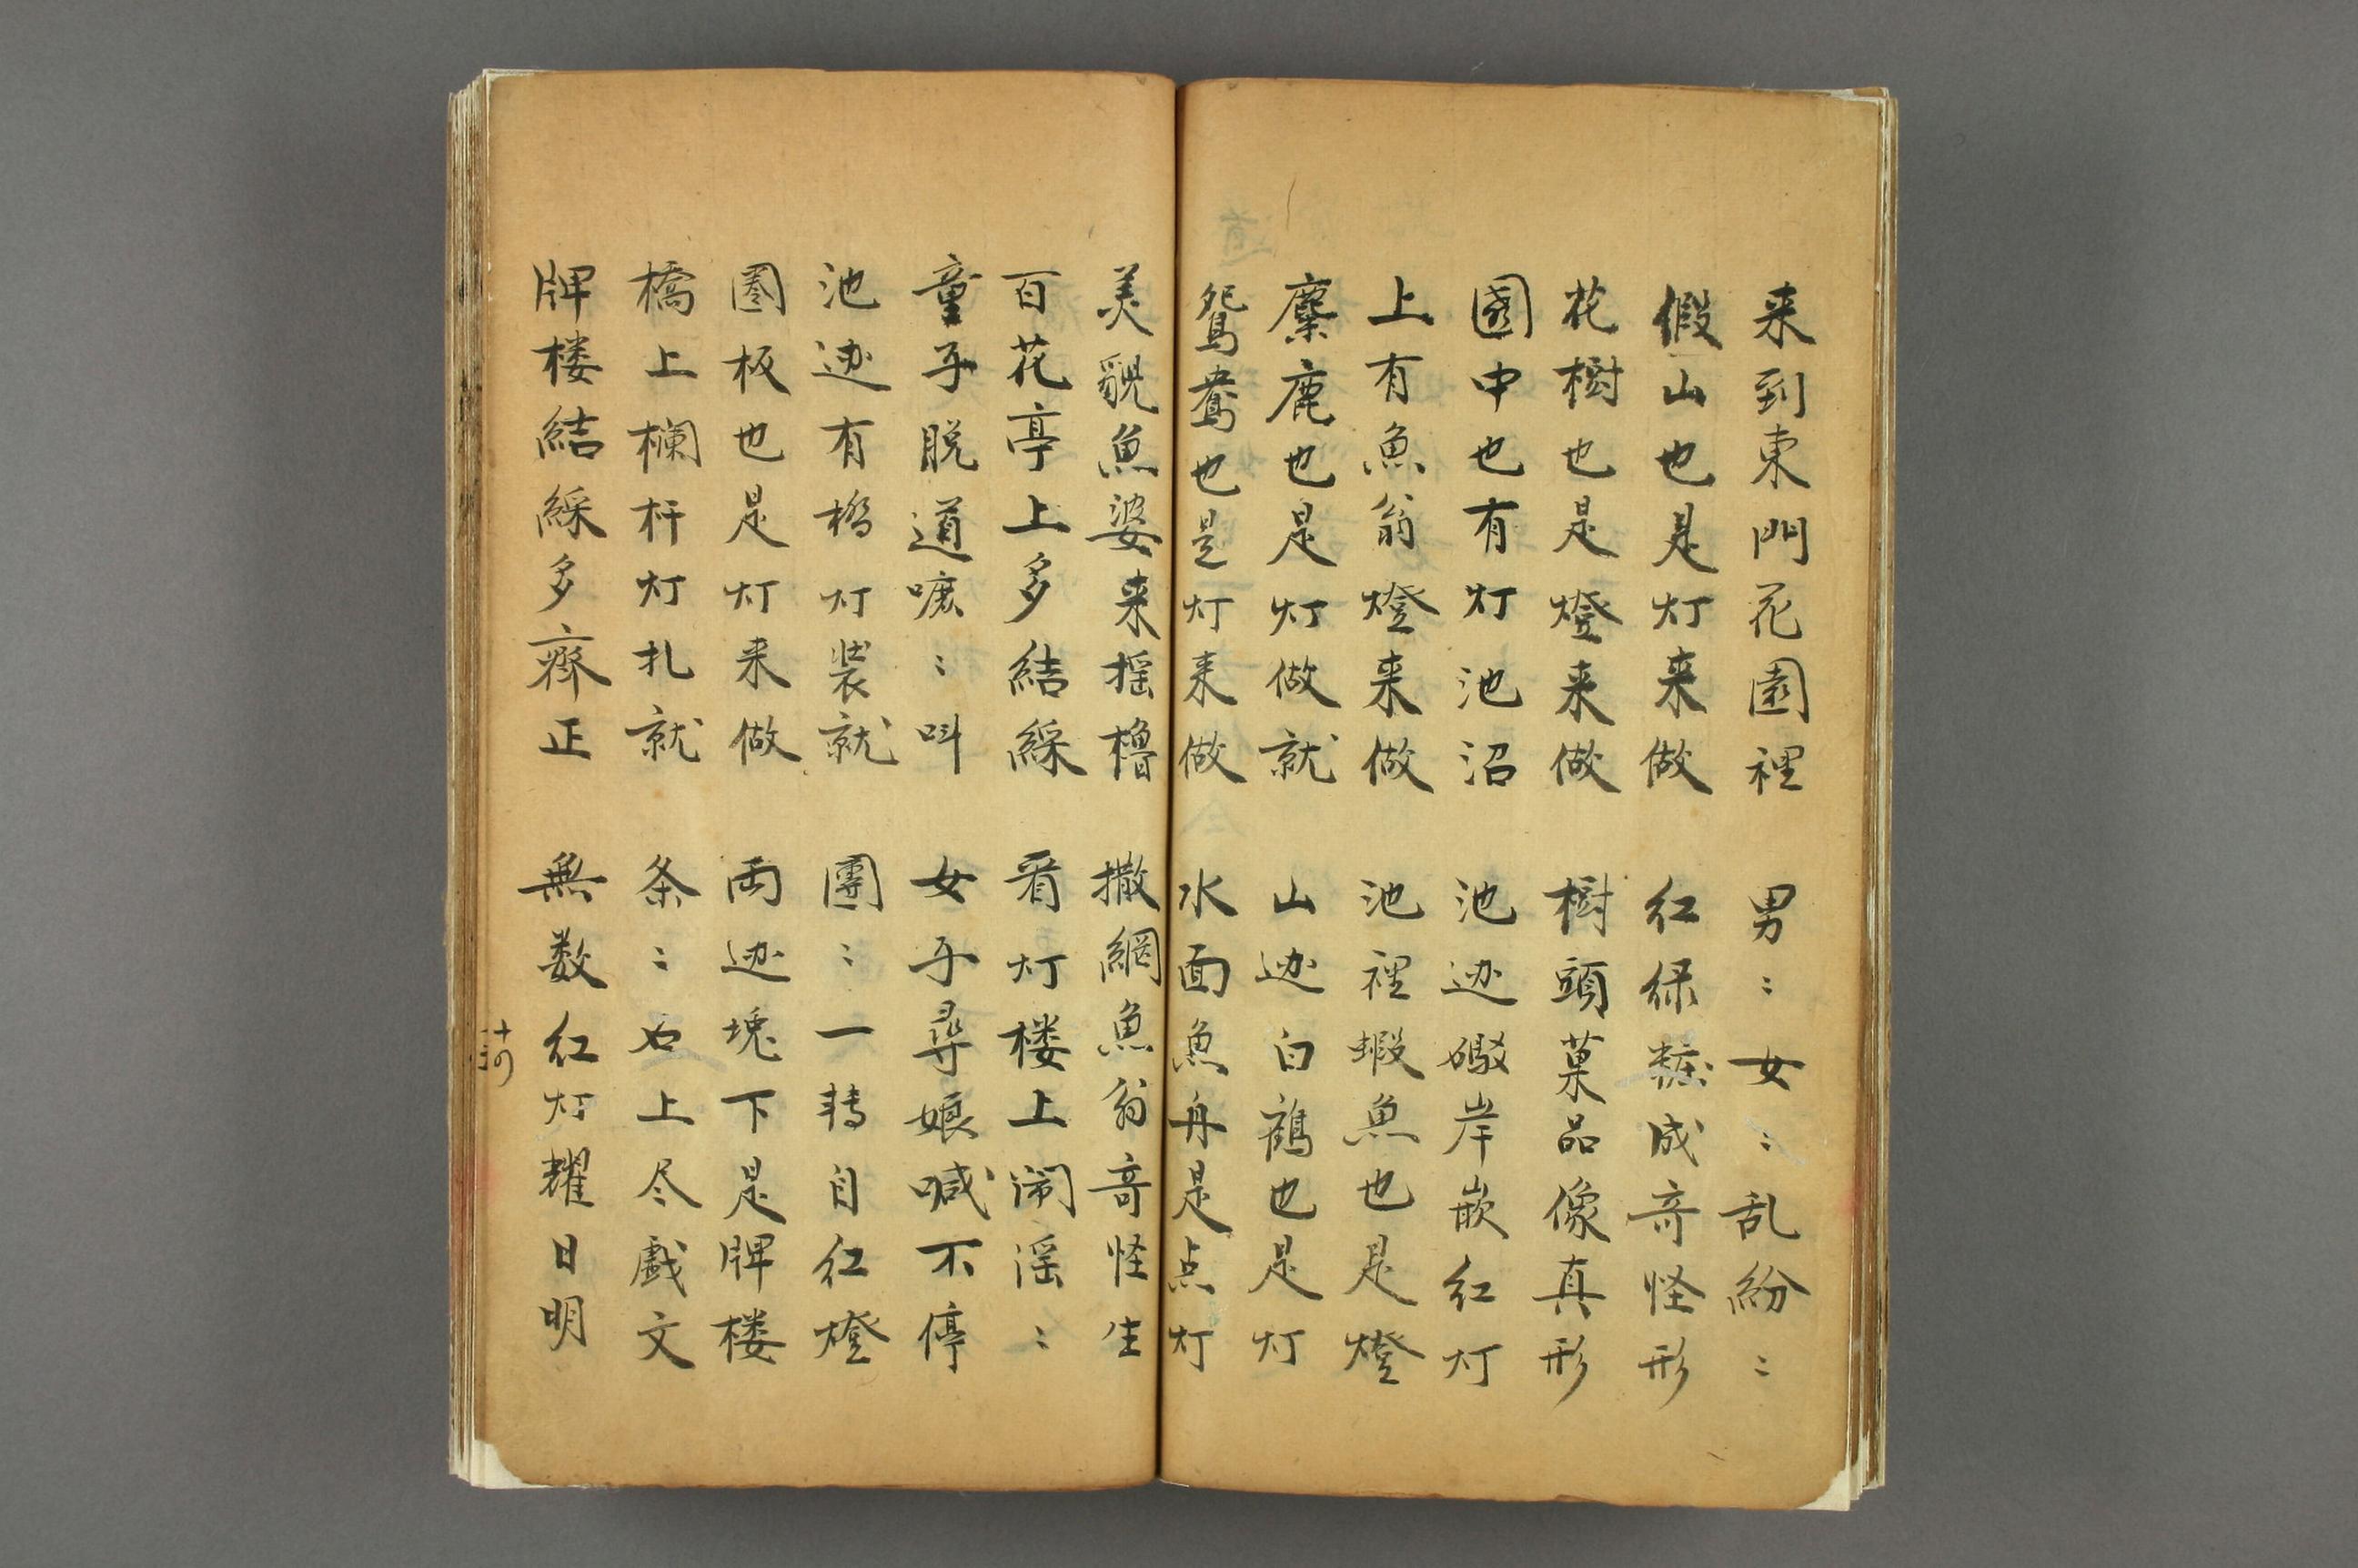 来到東門花園裡　男〻女〻乱紛〻
假山也是灯来做　紅绿粧成奇怪形
花樹也是燈来做　樹頭菓品像真形
園中也有灯池沼　池边礮岸嵌紅灯
上有魚翁燈来做　池裡蝦魚也是燈
麋鹿也是灯做就　山边白鶴也是灯
鴛鴦也是灯来做　水面魚舟是点灯
美貌魚婆来摇櫓　撒網魚翁奇怪生
百花亭上多結綵　看灯楼上闹滛〻
童子脱道嚒〻叫　女子尋娘喊不停
池边有橋灯装就　團〻一轉自紅燈
圈板也是灯来做　両边塊下是牌楼
橋上欄杆灯扎就　条〻石上尽戲文
牌楼結綵多齊正　無数紅灯耀日明